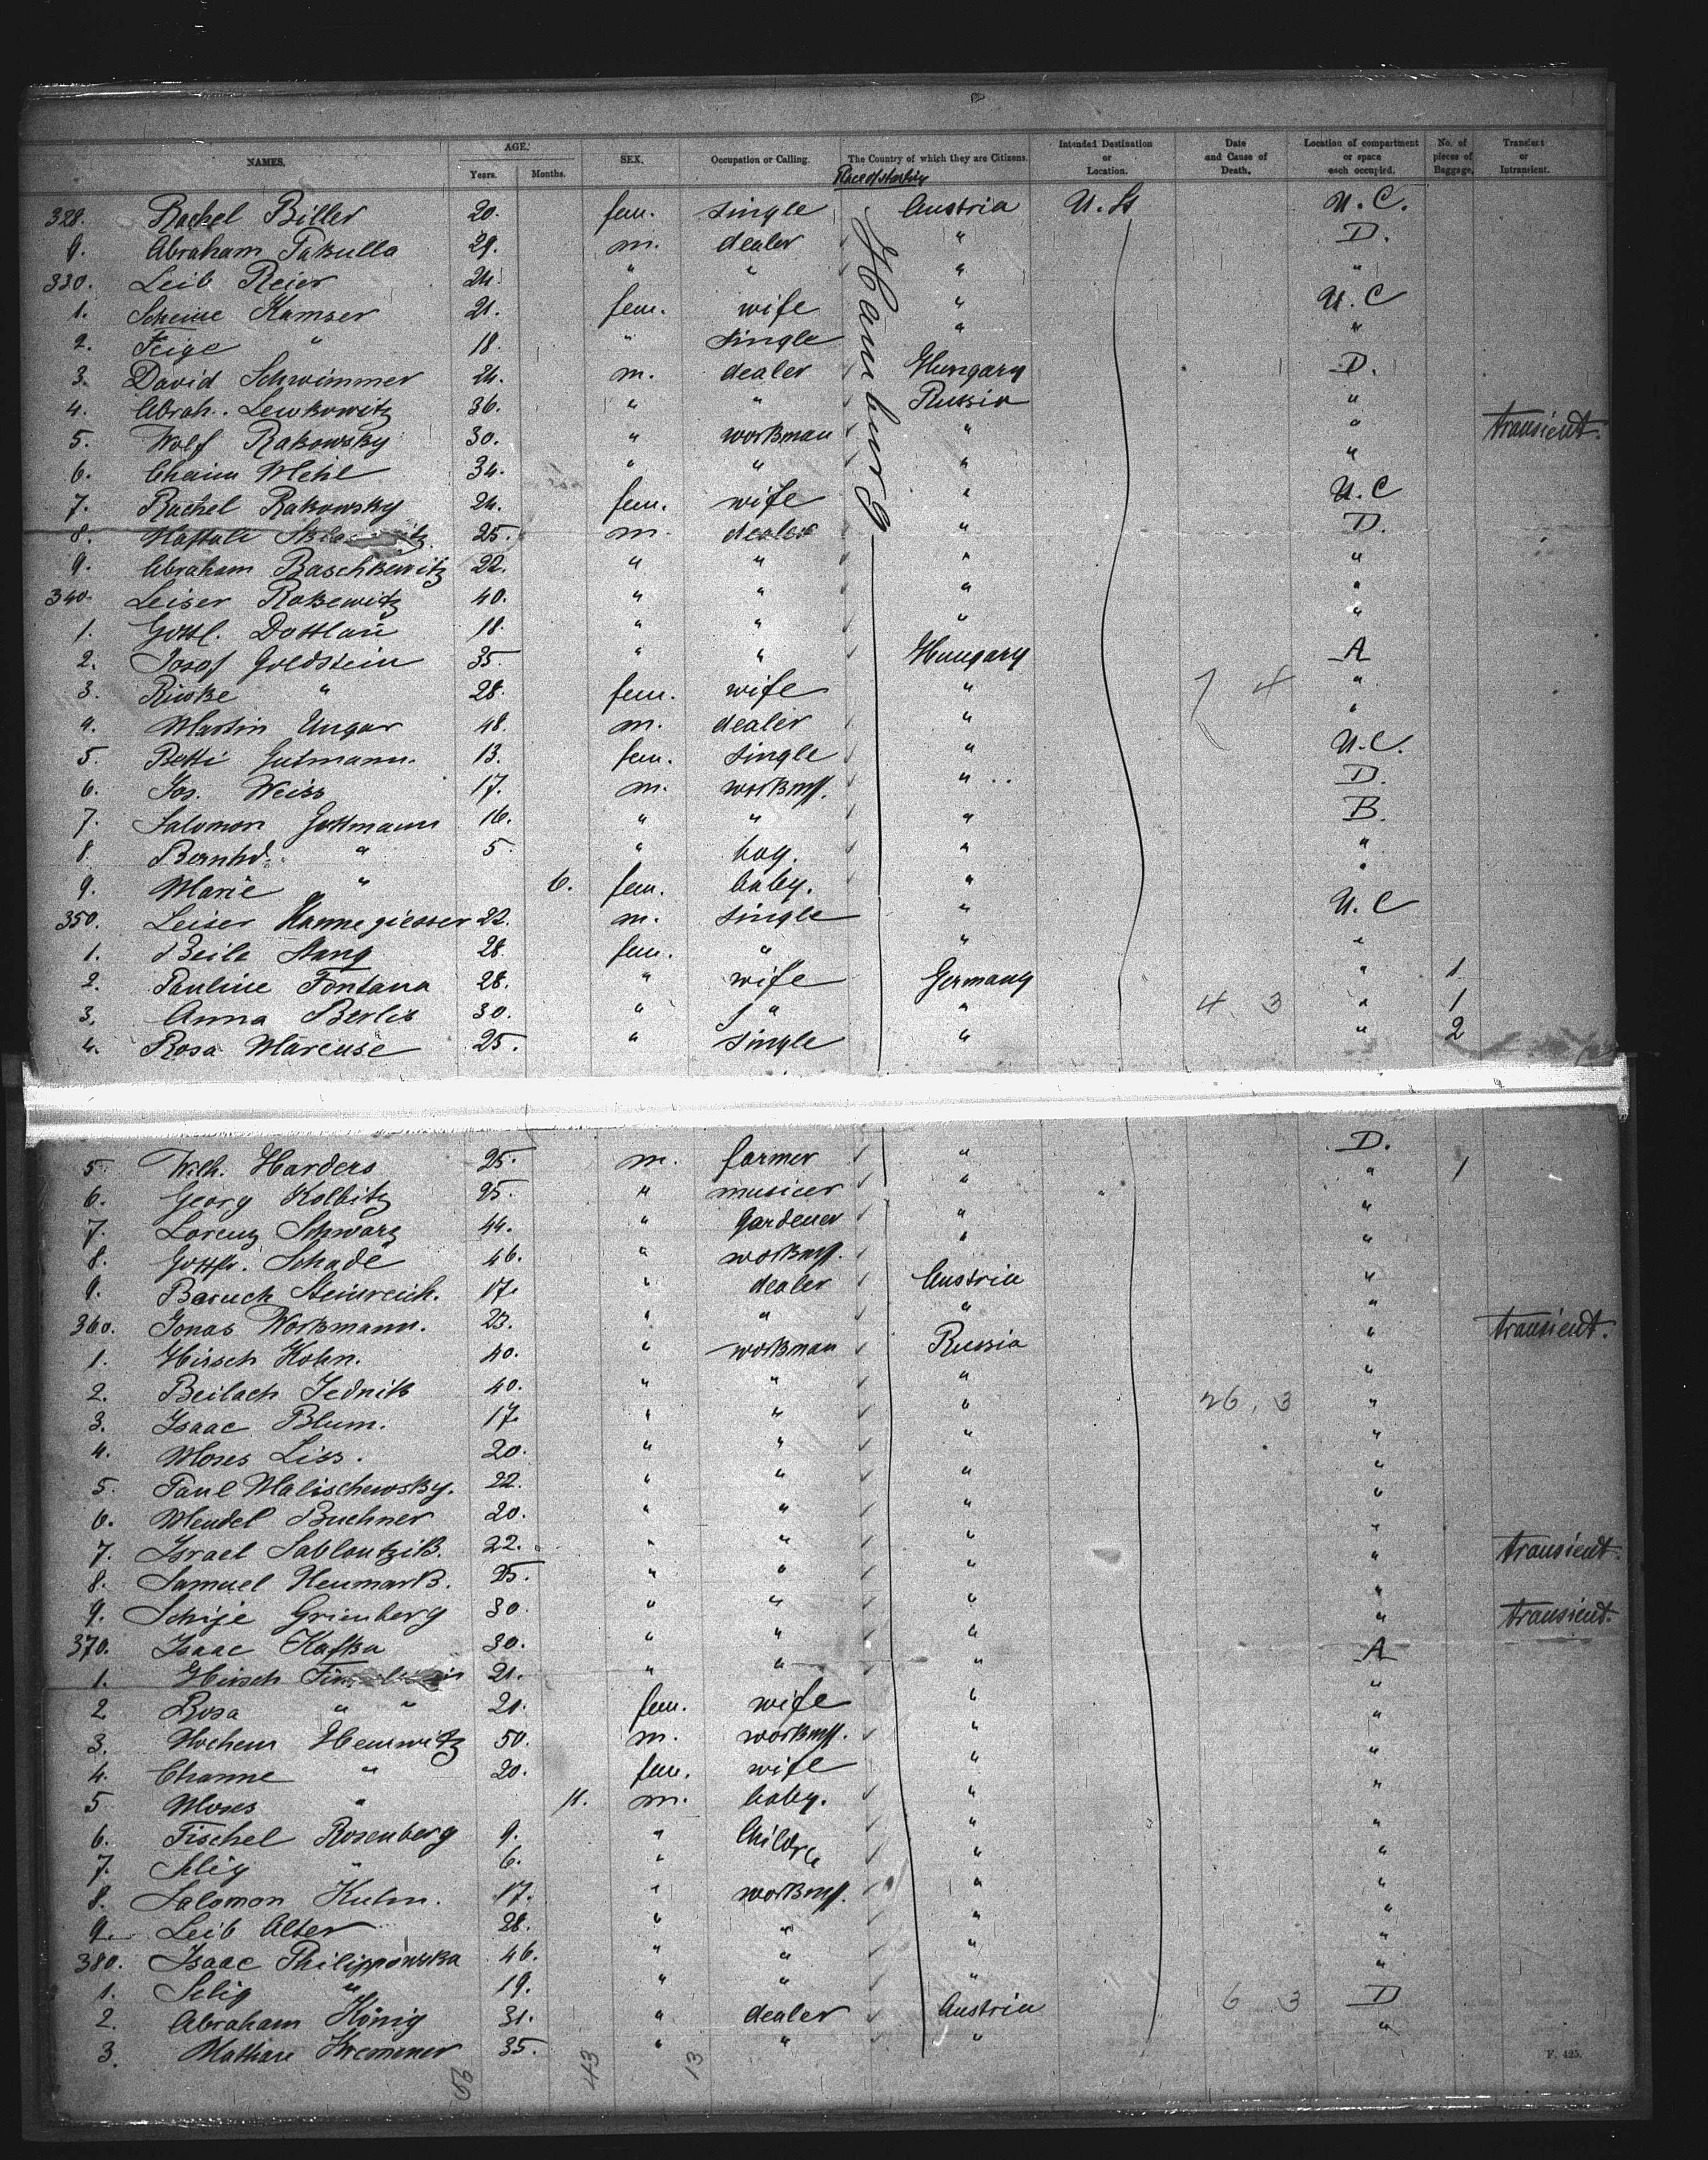 NAMES. AGE. Years. Months. SEX. Occupation or Calling. The Country of which they are Citizens. Intended Destination or Location. Date and Cause of Death. Location of compartment or space each occupied. No. of pieces of Baggage. Transient or Intransient.
Place of starting
Hamburg
328. Rachel Biller 20. fem. single Austria U. St U. C.
9. Abraham Takulla 29. m. dealer " D.
330. Leib Reier 24. " " " "
1. Scheine Kamser 21. fem. wife " U. C
2. Feige " 18. " single " "
3. David Schwimmer 24. m. dealer Hungary D.
4. Abrah. Lewkowitz 36. " " Russia "
5. Wolf Rakowsky 30. " workman " " transient.
6. Chaim Mehl 34. " " " "
7. Rachel Rakowsky 24. fem. wife " U. C
8. Naftali 25. m. dealer " D.
9. Abraham Baschkewitz 22. " " " "
340. Leiser Rakewitz 40. " " " "
1. Gottl. Dattlau 18. " " " "
2. Josef Goldstein 35. " " Hungary A
3. Riwke " 28. fem. wife " 7 4 "
4. Martin Ungar 48. m. dealer " "
5. Betti Gutmann. 13. fem. single " U. C.
6. Jos. Weiss 17. m. workmn. " D.
7. Salomon Guttmann 16. " " " B.
8. Bernhd. " 5 " boy. " "
9. Marie " 6. fem. baby. " "
350. Leiser Kannegiesser 22. m. single " U. C
1. Beile Stang 28. fem. " " "
2. Pauline Fontana 28. " wife Germany " 1
3. Anna Berlis 30. " " " 4 3 " 1
4. Rosa Marcuse 25. " single " " 2
5. Wilh. Harders 25. m. farmer " D.
6. Georg Kolbitz 25. " musicer " " 1
7. Lorenz Schwarz 44. " Gardener " "
8. Gottfr. Schade 46. " workmn. " "
9. Baruch Steinreich. 17. " dealer Austria "
360. Jonas Workmann. 23. " " " " transient.
1. Hirsch Kohn. 40. " workman Russia "
2. Beilach Jednik 40. " " " 26. 3 "
3. Isaac Blum. 17. " " " "
4. Moses Liss. 20. " " " "
5. Paul Malischewsky. 22. " " " "
6. Mendel Buchner 20. " " " "
7. Israel Sablontzik. 22. " " " " transient.
8. Samuel Neumark. 25. " " " "
9. Schije Grienberg 30. " " " " transient.
370. Isaac Kafka 30. " " " A
1. Hirsch 21. " " " "
2 Rosa " " 21. fem. wife " "
3. Nochem Hemwitz 50. m. workmn. " "
4. Channe " 20. fem. wife " "
5 Moses " 11. m. baby. " "
6. Fischel Rosenberg 9. " Children " "
7. Selig " 6. " " "
8. Salomon Kulm. 17. " workmn. " "
9. Leib Alter 28. " " " "
380. Isaac Philippowska 46. " " " "
1. Selig " 19. " " " "
2. Abraham König 31. " dealer Austria 6 3 D
3. Kremmer 35. " " " "
43 13
F. 425.